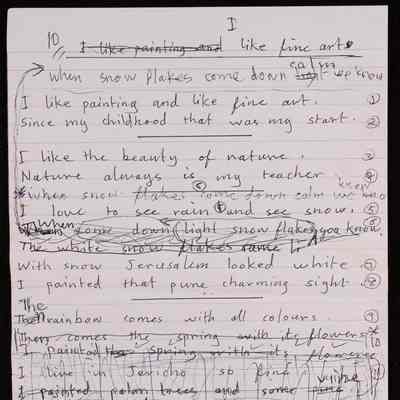 I
10 I like painting and like fine art.
When snow flakes come down calm we know
I like painting and like fine art. 1
Since my childhood that was my start. 2
I like the beauty of nature. 3
Nature always is my teacher. 4
* when snow flakes come down calm we
I love to see rain and see snow. 5
When come down light snow flakes you know.
The white snow flakes
With snow Jerusalem looked white. 7
I painted that pure charming sight. 8
The
Then rainbow comes with all colours. 9
Then comes the spring with its flowers. 10
I painted the spring with its flowers
I live in Jericho so fine
I painted palm trees and some